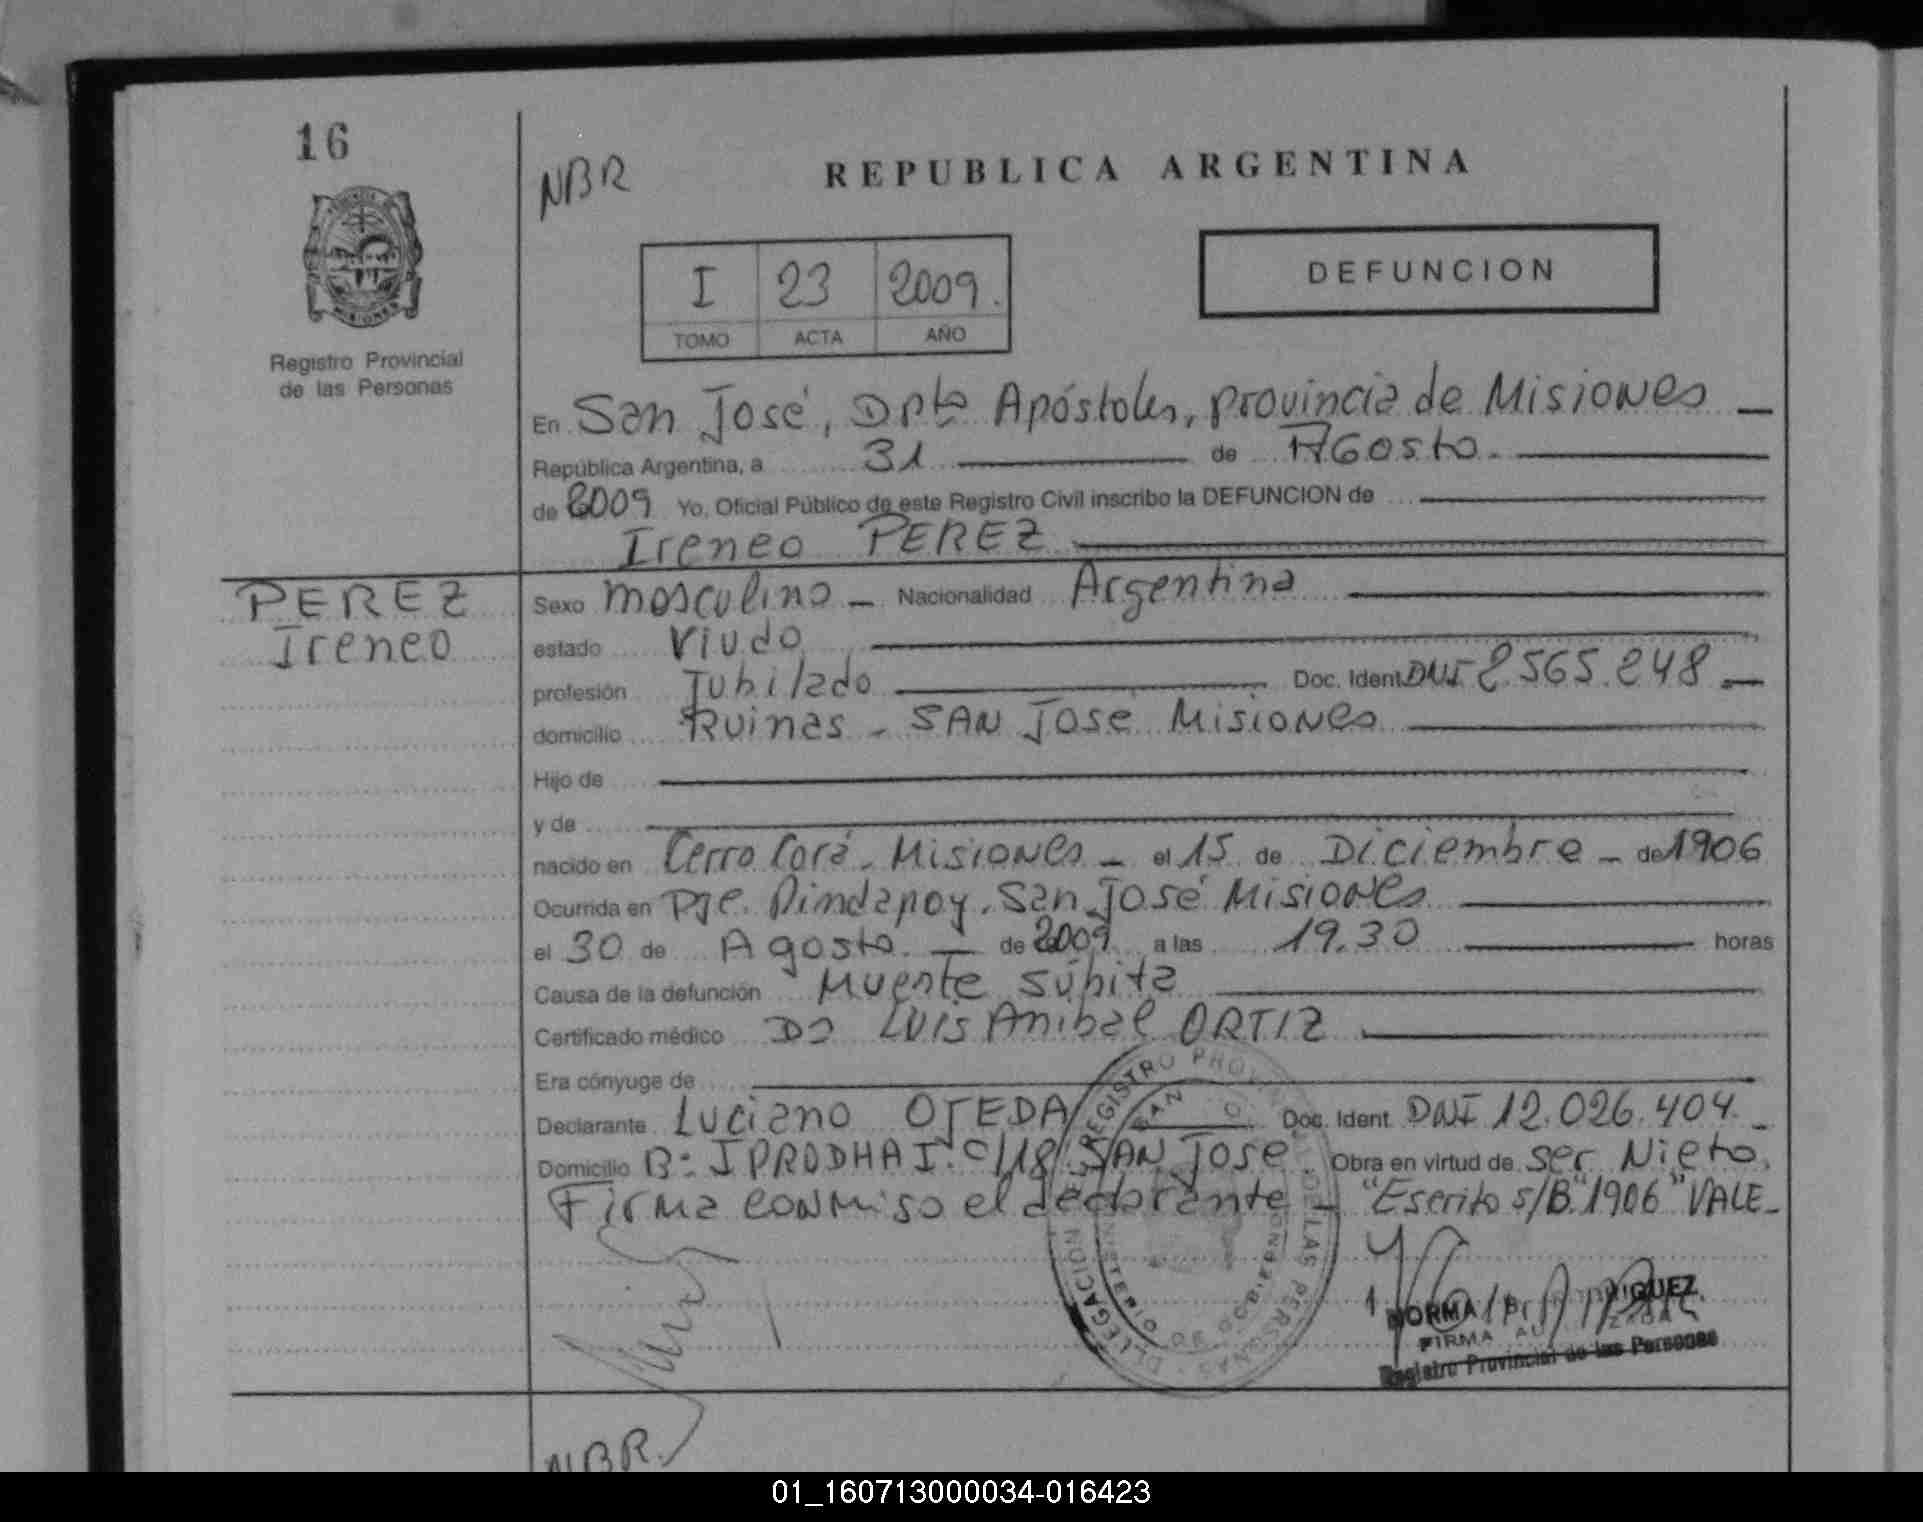 16
NBR
REPUBLICA ARGENTINA
I 23 2009.
TOMO ACTA AÑO
DEFUNCION
Registro Provincial
de las Personas
En San José, Dpto Apóstoles, provincia de Misiones
República Argentina, a 31 de AGosto.
de 2009 Yo, Oficial Público de este Registro Civil inscribo la DEFUNCION de
Ireneo PEREZ
PEREZ
Ireneo
Sexo masculino Nacionalidad Argentina
estado Viudo
profesión Jubilado Doc. Ident. DNI 2.565.248
domicilio Ruinas - SAN José Misiones
Hijo de
y de
nacido en Cerro Corá - Misiones - el 15 de Diciembre - de 1906
Ocurrida en Pje. Pindapoy. San José Misiones
el 30 de Agosto. de 2009 a las 19.30 horas
Causa de la defunción Muerte Súbita
Certificado médico Dr LUIS Anibal ORTIZ
Era cónyuge de
Declarante Luciano OJEDA Doc. Ident. DNI 12.026.404.
Domicilio B: IPRODHA I. C/18 SAN JOSE Obra en virtud de ser Nieto.
Firma conmiso el declarante - "Escrito s/B "1906" VALE-
DELEGACION REGISTRO PROVINCIAL DE LAS PERSONAS
MINISTERIO DE GOBIERNO
SAN JO
NORMA B. RODRIGUEZ
FIRMA AUTORIZADA
Registro Provincial de las Personas
NBR.
01_160713000034-016423